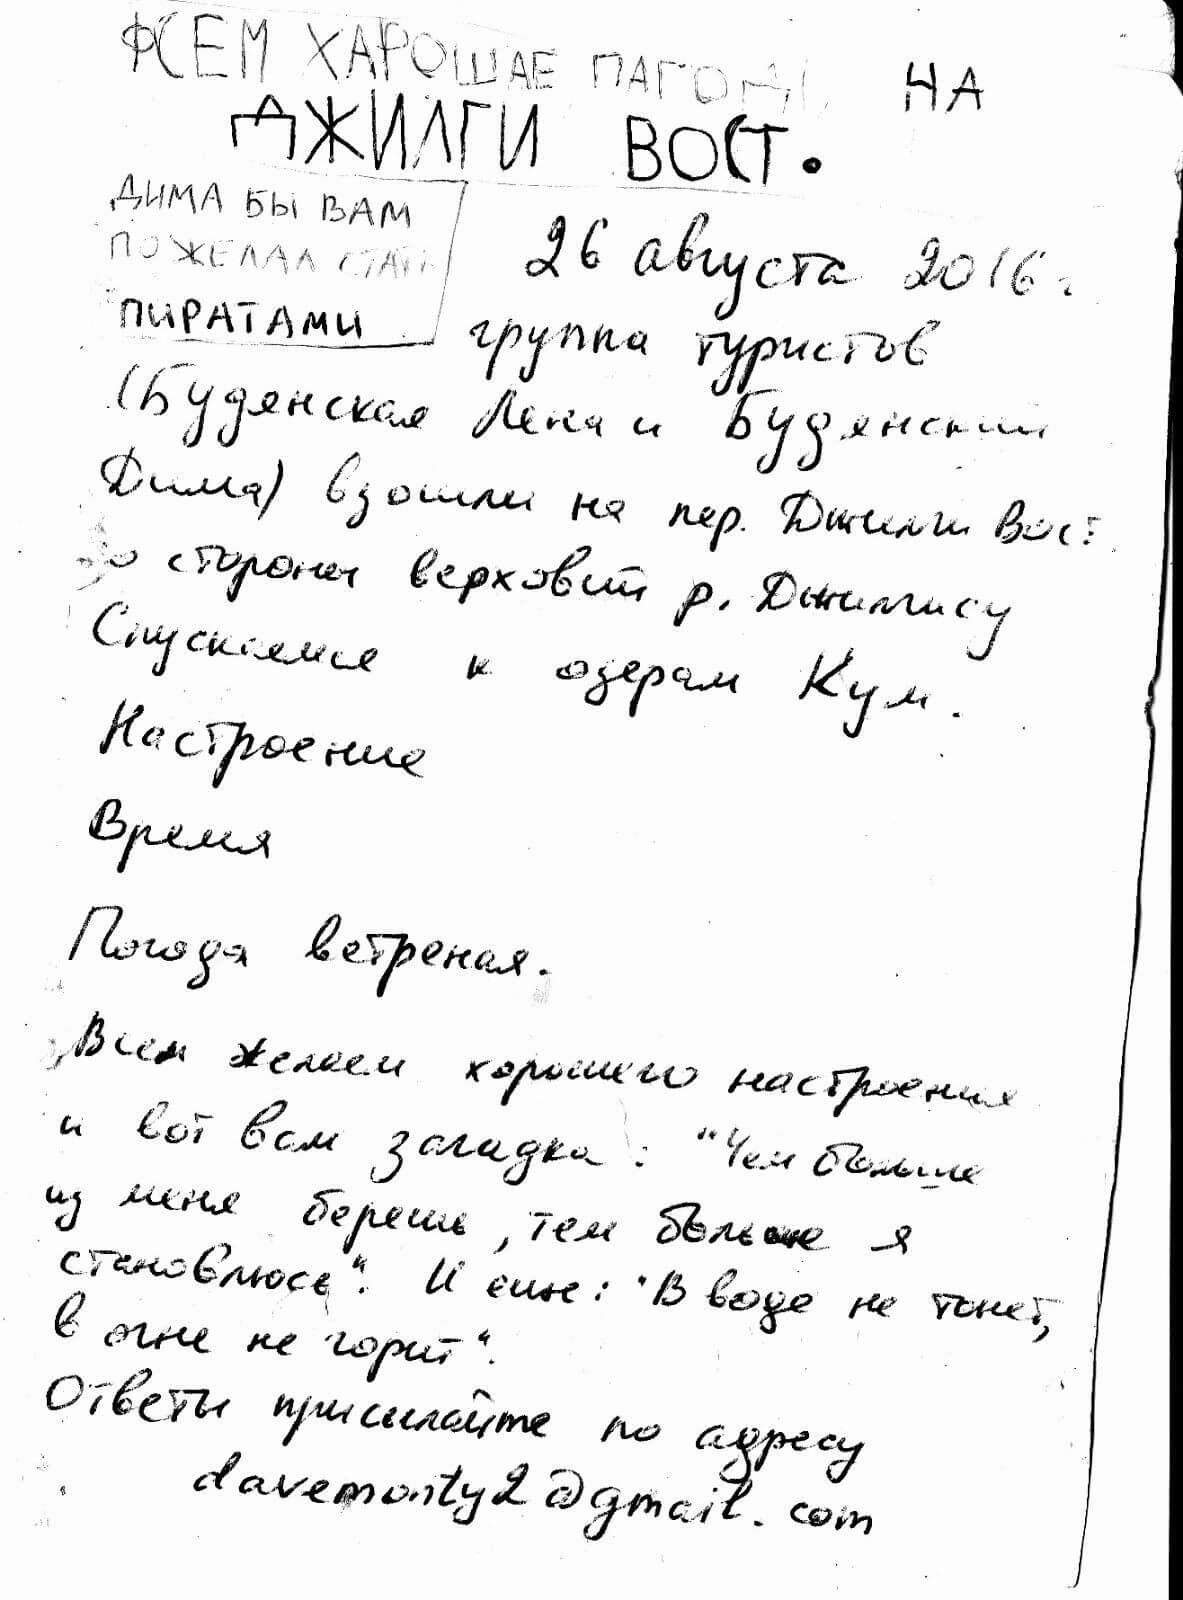 ФСЕМ ХАРОШАЕ ПАГОДЫ НА
ДЖИЛГИ ВОСТ.
ДИМА БЫ ВАМ
ПОЖЕЛАЛ СТАТЬ
ПИРАТАМИ
26 августа 2016 г.
группа туристов
(Будянская Лена и Будянский
Дима) взошли на пер. Джилги Вост.
со стороны верховий р. Джилгису
Спускаемся к озерам Кум.
Настроение
Время
Погода ветреная.
Всем желаем хорошего настроения
и вот вам загадка: "Чем больше
из меня берешь, тем больше я
становлюсь". И еще: "В воде не тонет,
в огне не горит".
Ответы присылайте по адресу
davemonty2@gmail.com